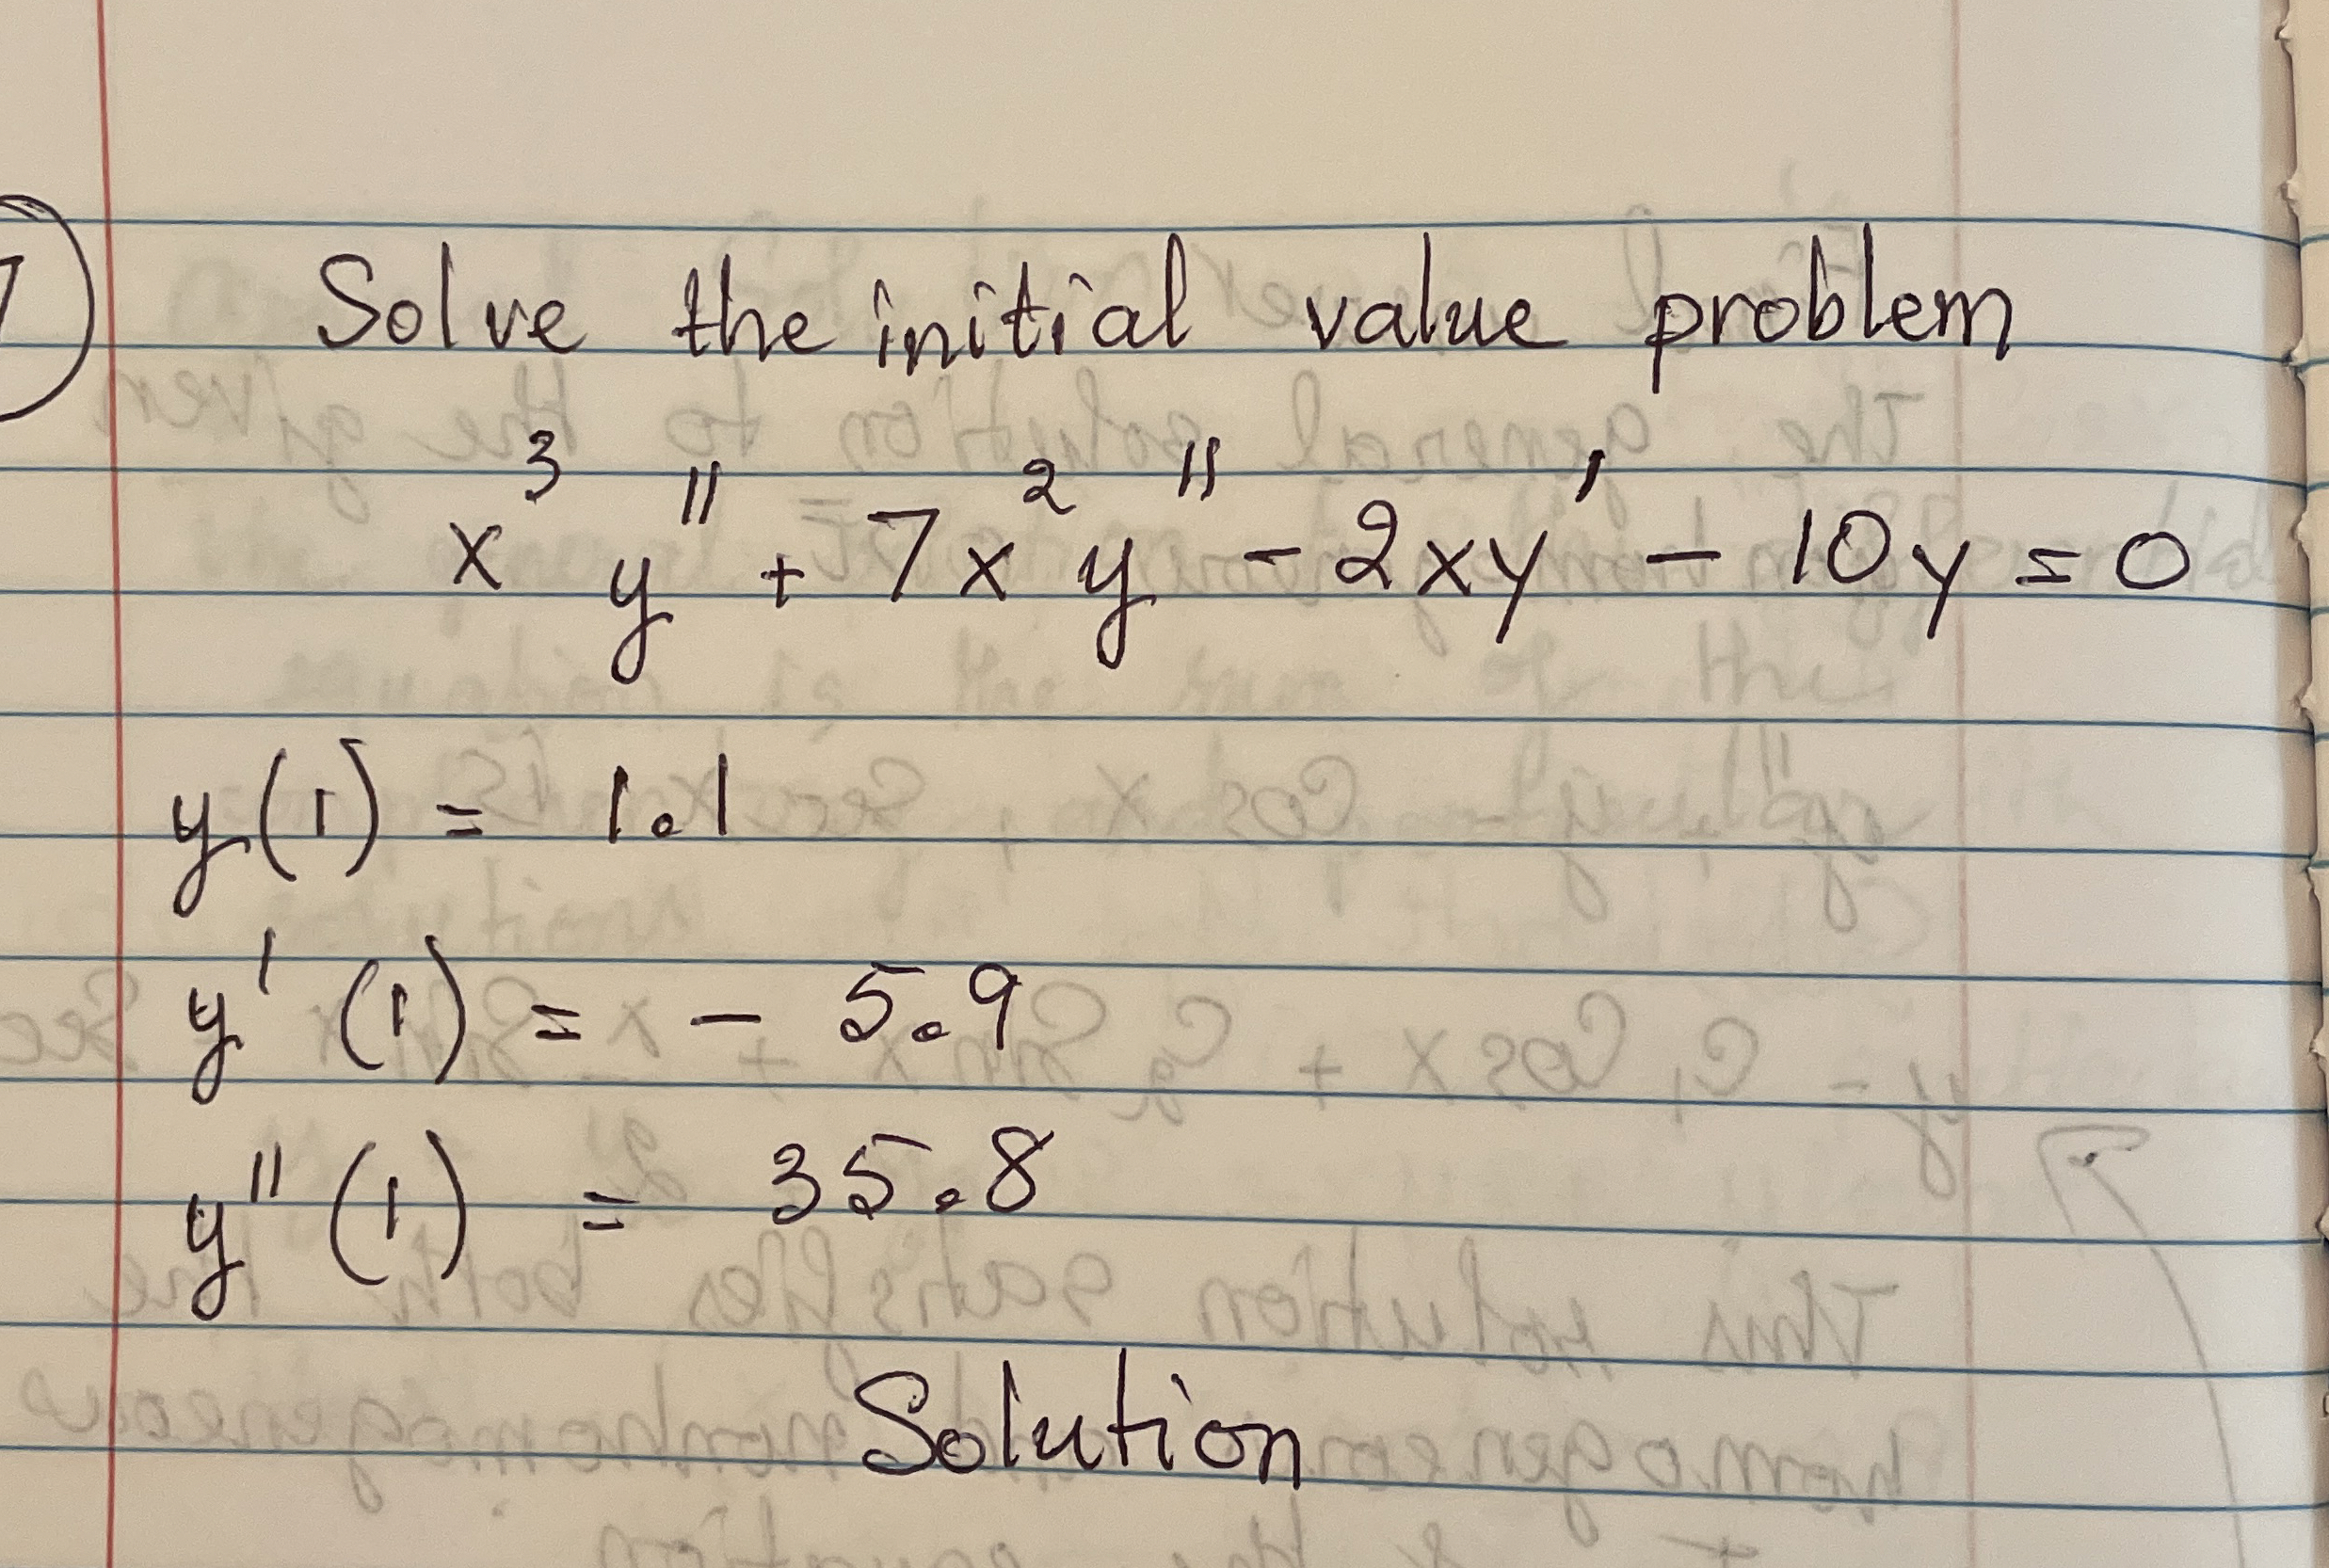 1 Solve the initial value problem
x³ y'' + 7x² y'' - 2xy' - 10y = 0
y(1) = 1.1
y'(1) = - 5.9
y''(1) = 35.8
Solution